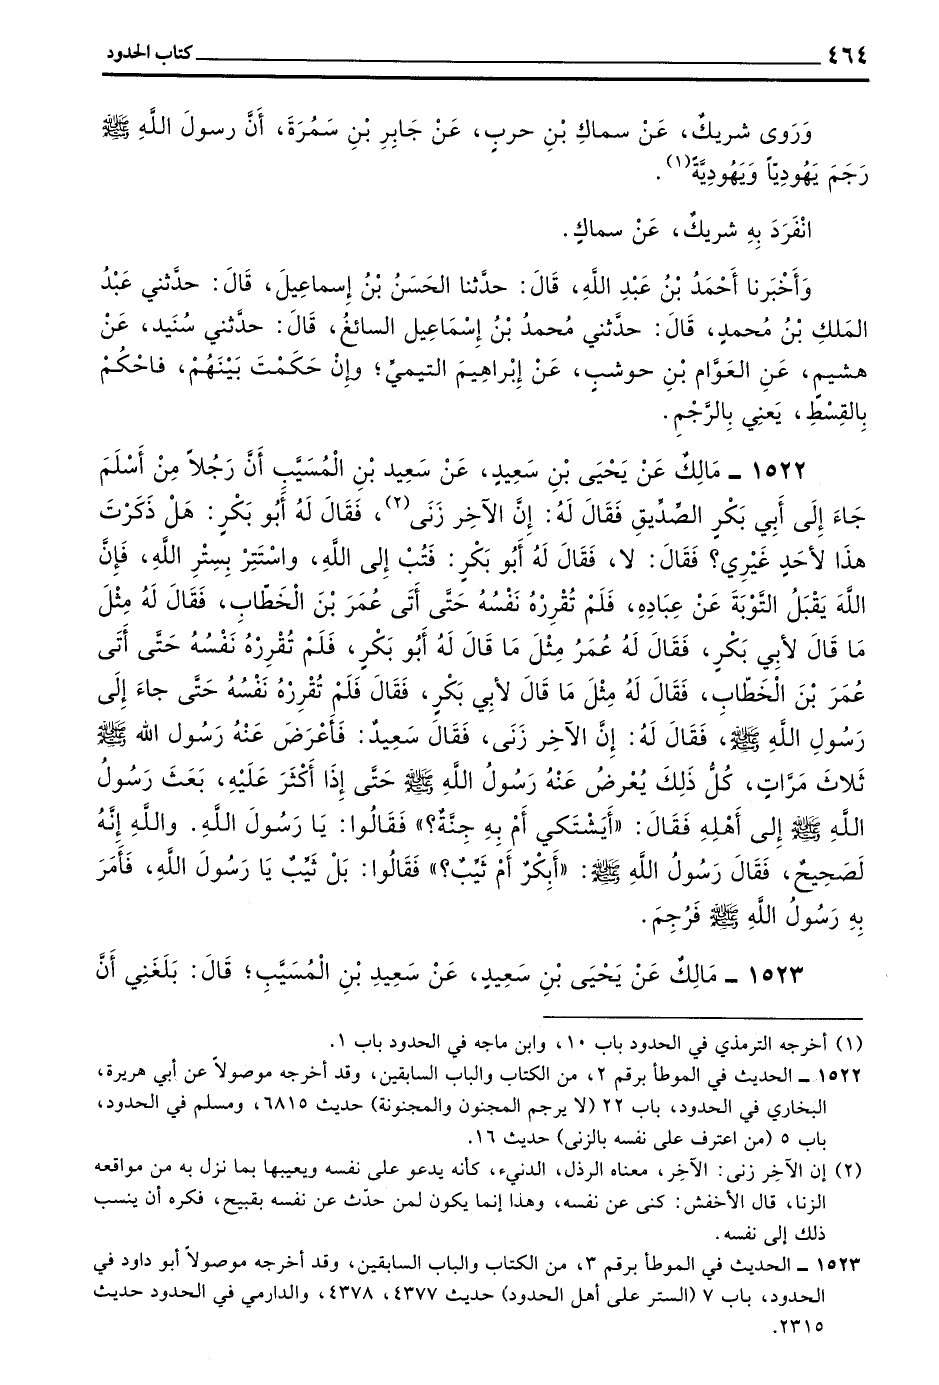 ٤٦٤ كتاب الحدود
وَرَوى شريكٌ، عَنْ سماكِ بْنِ حربٍ، عَنْ جَابِرِ بْنِ سَمُرَةَ، أَنَّ رسولَ اللَّهِ ﷺ
رَجَمَ يَهُودِيّاً وَيَهُودِيَّةً(١).
انْفَرَدَ بِهِ شريكٌ، عَنْ سماكٍ.
وَأَخْبَرنا أَحْمَدُ بْنُ عَبْدِ اللَّهِ، قَالَ: حدَّثنا الحَسَنُ بْنُ إسماعيلَ، قَالَ: حدَّثني عَبْدُ
المَلكِ بْنُ مُحمدٍ، قَالَ: حدَّثني مُحمدُ بْنُ إسْمَاعيل السائغُ، قَالَ: حدَّثني سُنَيد، عَنْ
هشيمٍ، عَنِ العَوَّام بْنِ حوشبٍ، عَنْ إبْراهيمَ التيميِّ؛ وإنْ حَكَمْتَ بَيْنَهُمْ، فاحْكُمْ
بِالقِسْطِ، يَعنِي بِالرَّجْمِ.
١٥٢٢ ـ مَالِكٌ عَنْ يَحْيَى بْنِ سَعِيدٍ، عَنْ سَعِيد بْنِ الْمُسَيَّبِ أَنَّ رَجُلاً مِنْ أَسْلَمَ
جَاءَ إِلَى أَبِي بَكْرٍ الصِّدِّيقِ فَقَالَ لَهُ: إنَّ الآخِر زَنَى(٢)، فَقَالَ لَهُ أَبُو بَكْرٍ: هَلْ ذَكَرْتَ
هذَا لأَحدٍ غَيْرِي؟ فَقَالَ: لا، فَقَالَ لَهُ أَبُو بَكْرٍ: فَتُبْ إلى اللَّهِ، واسْتَتِرْ بِسِتْرِ اللَّهِ، فَإِنَّ
اللَّهَ يَقْبَلُ التَّوْبَةَ عَنْ عِبَادِهِ، فَلَمْ تُقْرِرْهُ نَفْسُهُ حَتَّى أَتَى عُمَرَ بْنَ الْخَطَّابِ، فَقَالَ لَهُ مِثْلَ
مَا قَالَ لأَبِي بَكْرٍ، فَقَالَ لَهُ عُمَرُ مِثْلَ مَا قَالَ لَهُ أَبُو بَكْرٍ، فَلَمْ تُقْرِرْهُ نَفْسُهُ حَتَّى أَتَى
عُمَرَ بْنَ الْخَطّابِ، فَقَالَ لَهُ مِثْلَ مَا قَالَ لأَبي بَكْرٍ، فَقَالَ فَلَمْ تُقْرِرْهُ نَفْسُهُ حَتَّى جاءَ إلَى
رَسُولِ اللَّهِ ﷺ، فَقَالَ لَهُ: إنَّ الآخِر زَنَى، فَقَالَ سَعِيدٌ: فَأَعْرَضَ عَنْهُ رَسُول الله ﷺ
ثَلاثَ مَرَّاتٍ، كُلُّ ذَلِكَ يُعْرِضُ عَنْهُ رَسُولُ اللَّهِ ﷺ حَتَّى إذَا أَكْثَرَ عَلَيْهِ، بَعَثَ رَسُولُ
اللَّهِ ﷺ إلى أَهْلِهِ فَقَالَ: «أَيَشْتَكي أَمْ بِهِ جِنَّةٌ؟» فَقَالُوا: يَا رَسُولَ اللَّهِ. واللَّهِ إنَّهُ
لَصَحِيحٌ، فَقَالَ رَسُولُ اللَّهِ ﷺ: «أَبِكْرٌ أَمْ ثَيِّبٌ؟» فَقَالُوا: بَلْ ثَيِّبٌ يَا رَسُولَ اللَّهِ، فَأَمَرَ
بِهِ رَسُولُ اللَّهِ ﷺ فَرُجِمَ.
١٥٢٣ ـ مَالِكٌ عَنْ يَحْيَى بْنِ سَعيدٍ، عَنْ سَعِيدِ بْنِ الْمُسَيَّبِ؛ قَالَ: بَلَغَنِي أَنَّ
(١) أخرجه الترمذي في الحدود باب ١٠، وابن ماجه في الحدود باب ١.
١٥٢٢ ـ الحديث في الموطأ برقم ٢، من الكتاب والباب السابقين، وقد أخرجه موصولاً عن أبي هريرة،
البخاري في الحدود، باب ٢٢ (لا يرجم المجنون والمجنونة) حديث ٦٨١٥، ومسلم في الحدود،
باب ٥ (من اعترف على نفسه بالزنى) حديث ١٦.
(٢) إن الآخِر زنى: الآخِر، معناه الرذل، الدنيء، كأنه يدعو على نفسه ويعيبها بما نزل به من مواقعه
الزنا، قال الأخفش: كنى عن نفسه، وهذا إنما يكون لمن حدّث عن نفسه بقبيح، فكره أن ينسب
ذلك إلى نفسه.
١٥٢٣ ـ الحديث في الموطأ برقم ٣، من الكتاب والباب السابقين، وقد أخرجه موصولاً أبو داود في
الحدود، باب ٧ (الستر على أهل الحدود) حديث ٤٣٧٧، ٤٣٧٨، والدارمي في الحدود حديث
٢٣١٥.